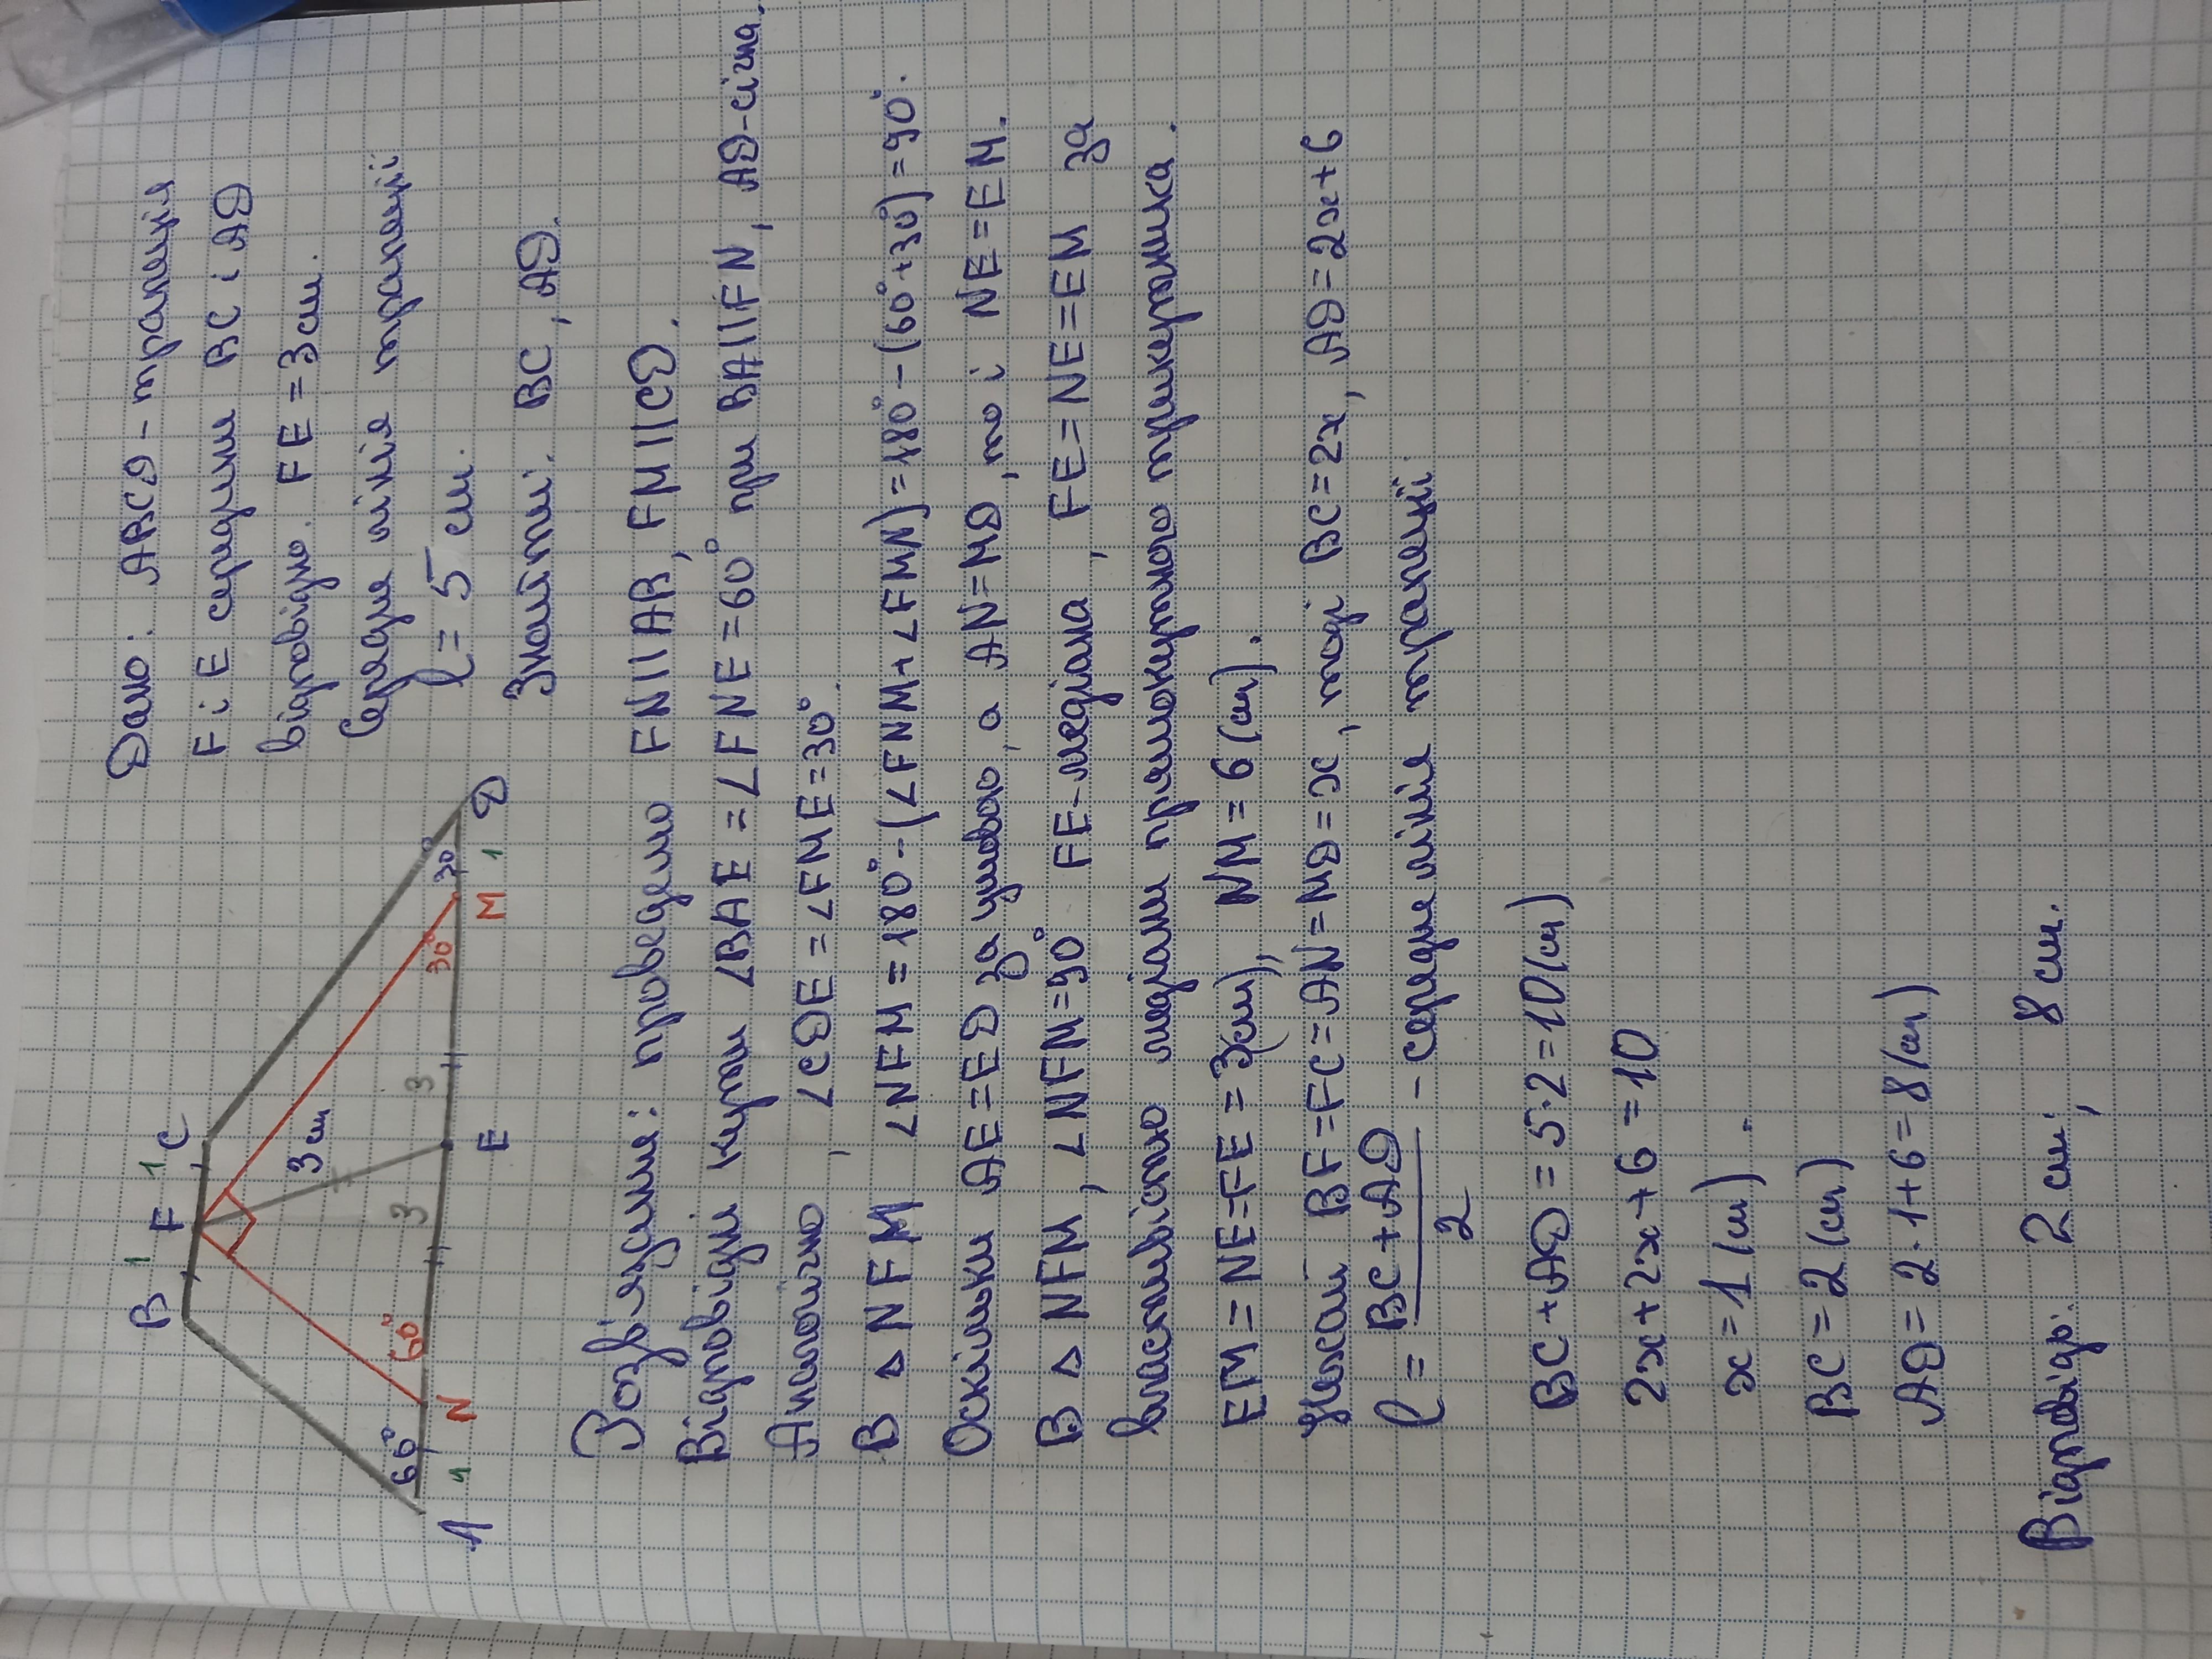 B F C
1 1
3 см
60° 60° 3 3 30° 30°
1 1
A N E M D
Дано: ABCD - трапеція
F і E середини BC і AD
відповідно. FE = 3 см.
Середня лінія трапеції
l = 5 см.
Знайти: BC, AD.
Розв'язання: проведемо FN || AB, FM || CD.
Відповідні кути ∠BAE = ∠FNE = 60° при BA || FN, AD - січна.
Аналогічно, ∠CDE = ∠FME = 30°.
В △ NFM ∠NFM = 180° - (∠FNM + ∠FMN) = 180° - (60° + 30°) = 90°.
Оскільки AE = ED за умовою, а AN = MD, то і NE = EM.
В △ NFM, ∠NFM = 90° FE - медіана, FE = NE = EM за
властивістю медіани прямокутного трикутника.
EM = NE = FE = 3(см), NM = 6 (см).
Нехай BF = FC = AN = MD = x, тоді BC = 2x, AD = 2x + 6
l = (BC + AD)/2 - середня лінія трапеції.
BC + AD = 5·2 = 10 (см)
2x + 2x + 6 = 10
x = 1 (см).
BC = 2 (см)
AD = 2·1 + 6 = 8 (см)
Відповідь: 2 см; 8 см.